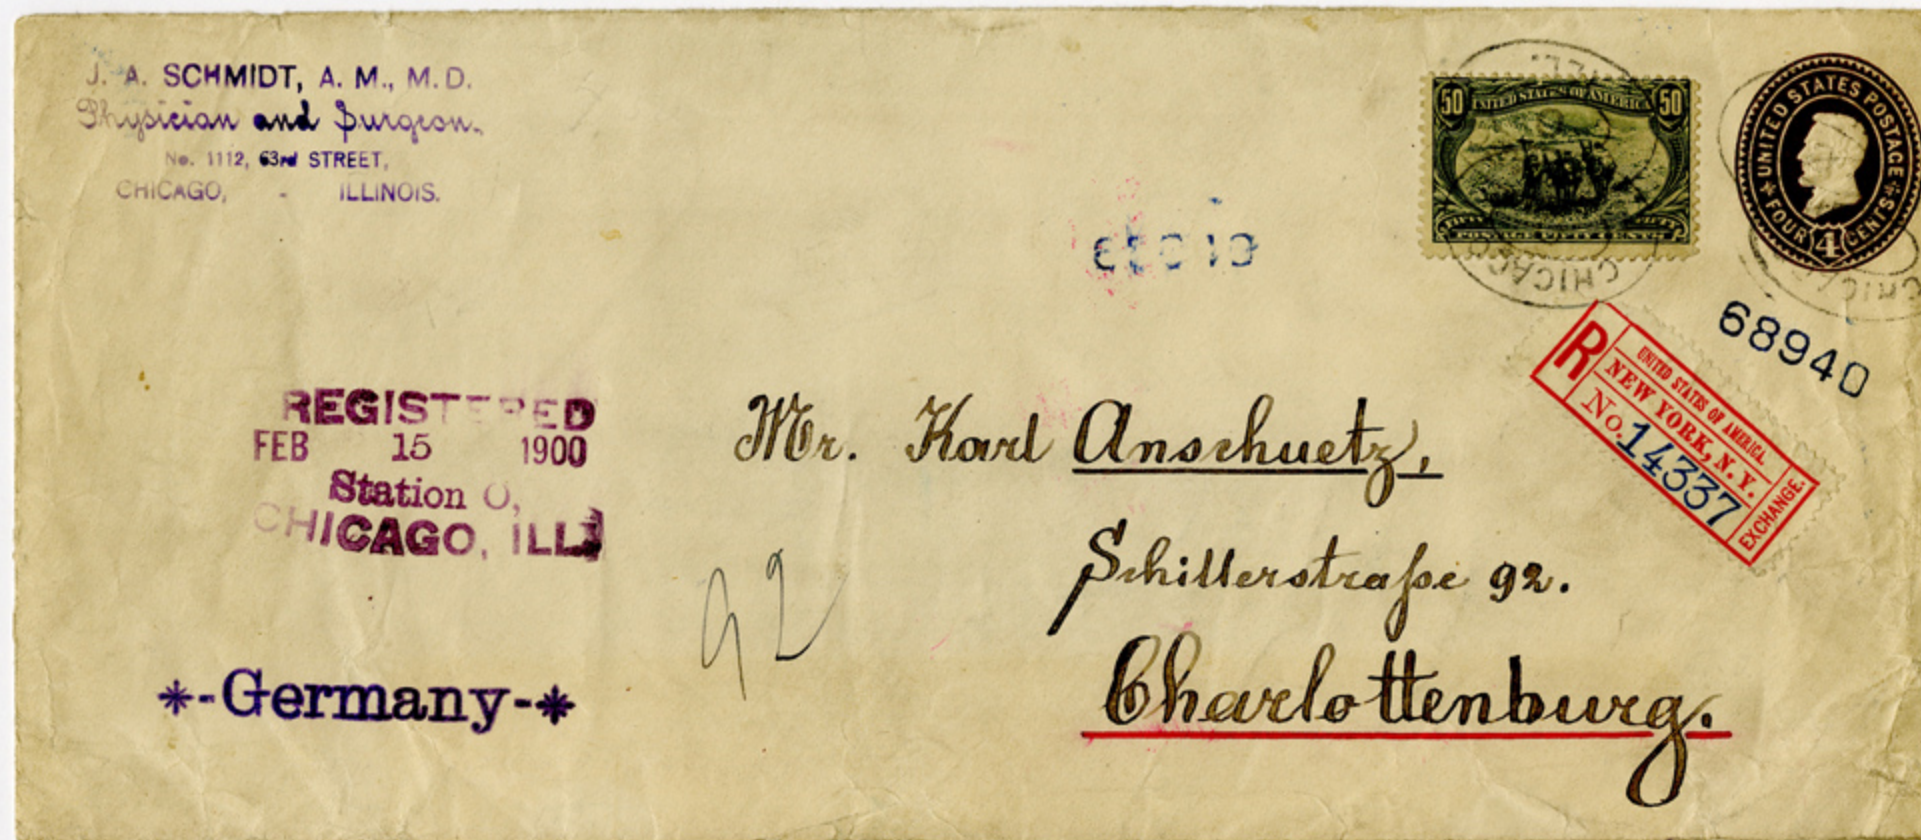 J. A. SCHMIDT, A. M., M. D.
Physician and Surgeon.
No. 1112, 63rd STREET,
CHICAGO, - ILLINOIS.
50 UNITED STATES OF AMERICA 50
POSTAGE FIFTY CENTS
UNITED STATES POSTAGE
FOUR 4 CENTS
ILL.
CHICAGO
CHICAGO
68940
R
UNITED STATES OF AMERICA.
NEW YORK, N. Y.
No. 14337
EXCHANGE.
REGISTERED
FEB 15 1900
Station O,
CHICAGO, ILL
Mr. Karl Anschuetz,
Schillerstraße 92.
Charlottenburg.
92
*-Germany-*